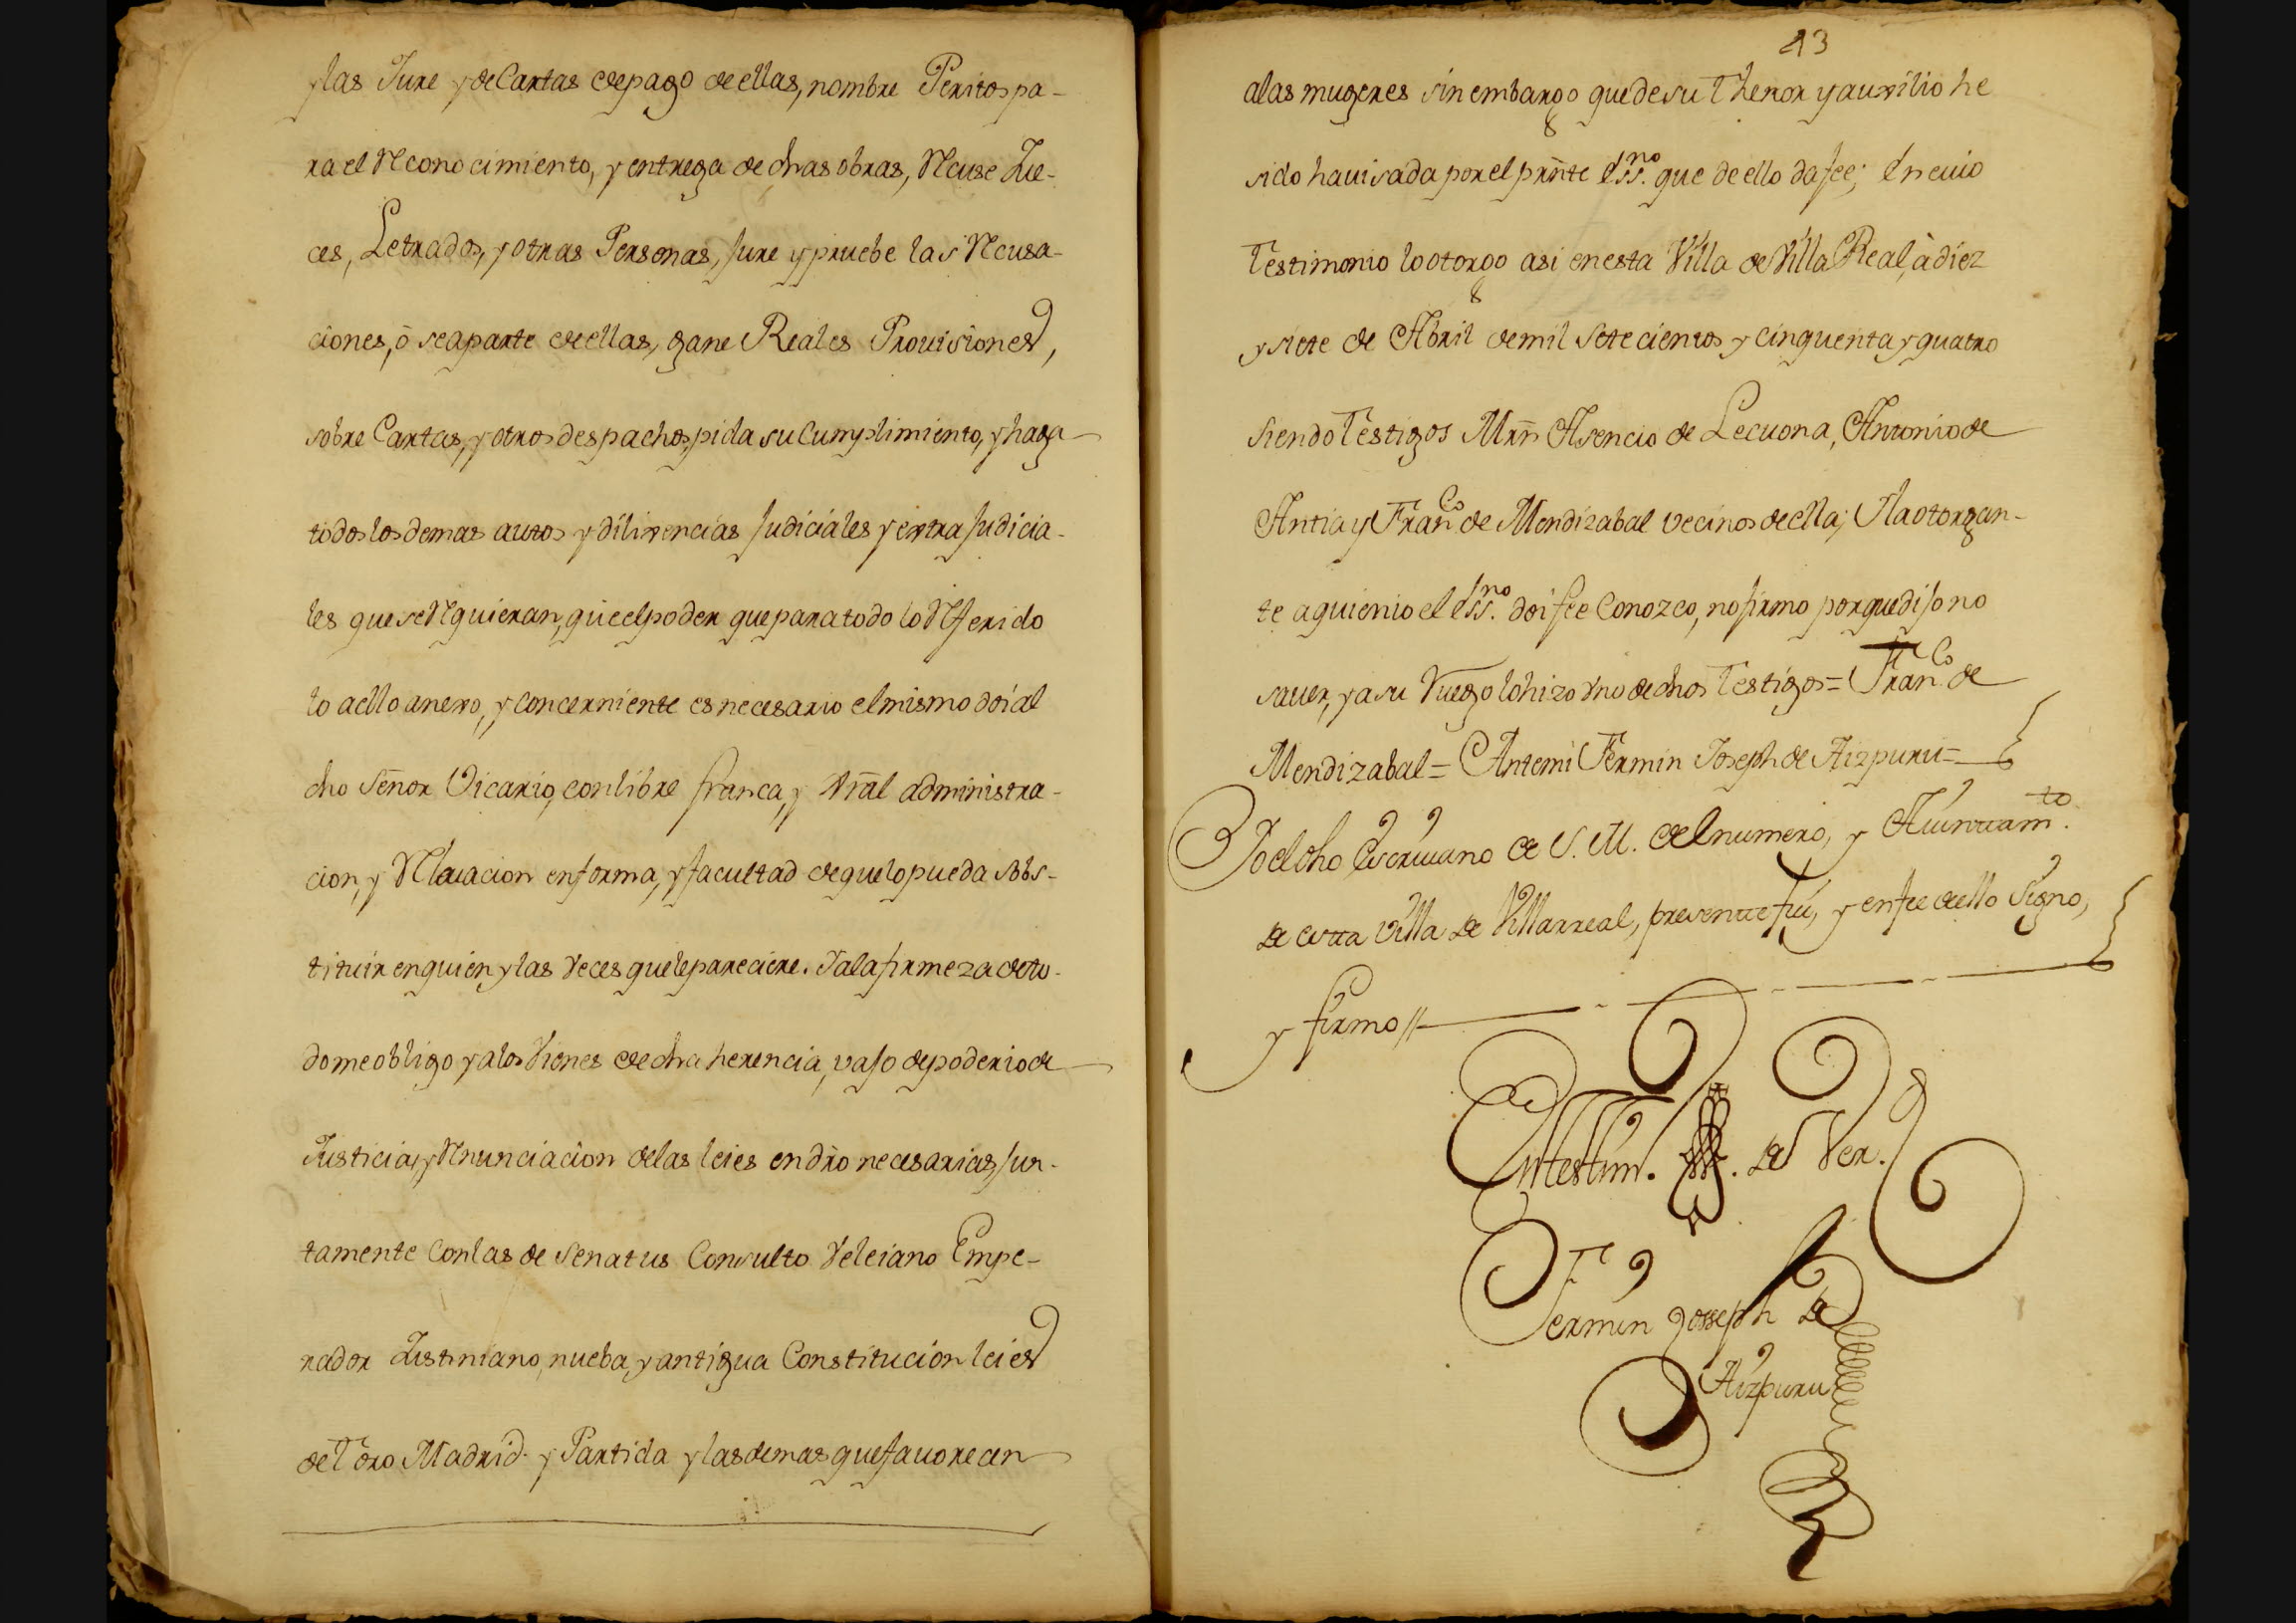 y las Jure y de Cartas de pago de ellas, nombre Peritos pa-
ra el Reconocimiento, y entrega de dhas obras, Recuse Jue-
ces, Letrados, y otras Personas, jure y pruebe las Recusa-
ciones, ò se aparte de ellas, gane Reales Provisiones,
sobre Cartas, y otros despachos, pida su Cumplimiento, y haga
todos los demas autos y dilixencias judiciales y extrajudicia-
les que se Requieran, que el poder que para todo lo Referido
lo a ello anexo, y concerniente es necesario el mismo doi al
dho Señor Vicario, con libre franca, y Grãl administra-
cion, y Relevacion en forma, y facultad de que lo pueda sobs-
tituir en quien y las veces que le pareciere. Y a la firmeza de to-
do me obligo y a los Vienes de dha herencia, vajo de poderio de
Justicia, y Renunciacion de las leies en dr̃o necesarias, jun-
tamente Con las de Senatus Consulto Veleiano Empe-
rador Justiniano, nueba, y antigua Constitucion leies
de Toro Madrid. y Partida y las demas que favorecen
43
a las mugeres sin embargo que de su Thenor y auxilio he
sido havisada por el pr̃nte Ess.no que de ello da fee; En cuio
Testimonio lo otorgo asi en esta Villa de Villa Real, à diez
y siete de Abril de mil setecientos y cinquenta y quatro
siendo Testigos Mr̃n Asencio de Lecuona, Antonio de
Antia y Fran.co de Mendizabal vecinos de ella; Y la otorgan-
te a quien io el Ess.no doi fee Conozco, no firmo porque dijo no
saver, y a su Ruego lo hizo Vno de dhos Testigos = Fran.co de
Mendizabal = Antemi Fermin Joseph de Aizpuru =
Yo el dho Escrivano de S. M. del numero, y Aiuntam.to
de esta Villa de Villarreal, presente fui, y en fee de ello Signo,
y firmo //
En testim. . de Ver.
Fermin Joseph de
Aizpuru